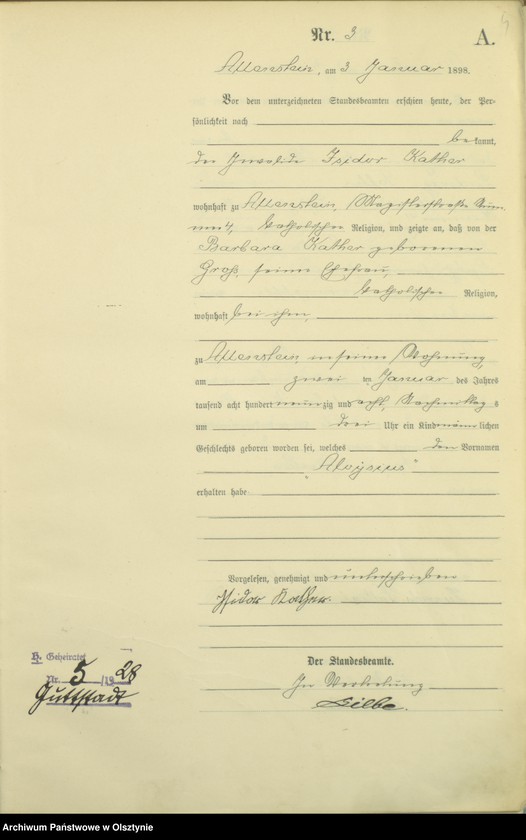 Nr. 3
A.
Allenstein, am 3 Januar 1898.
Vor dem unterzeichneten Standesbeamten erschien heute, der Per-
sönlichkeit nach
bekannt,
der Invalide Isidor Kather
wohnhaft zu Allenstein, Magisterstraße Num-
mer 4, katholischer Religion, und zeigte an, daß von der
Barbara Kather geborenen
Groß, seiner Ehefrau,
katholischer Religion,
wohnhaft bei ihm,
zu Allenstein in seiner Wohnung,
am zwei ten Januar des Jahres
tausend acht hundert neunzig und acht, Nachmittags
um drei Uhr ein Kind männlichen
Geschlechts geboren worden sei, welches den Vornamen
"Aloysius"
erhalten habe
Vorgelesen, genehmigt und unterschrieben
Isidor Kather.
Der Standesbeamte.
In Vertretung
H. Geheiratet
Nr. 5/1928
Guttstadt
Archiwum Państwowe w Olsztynie